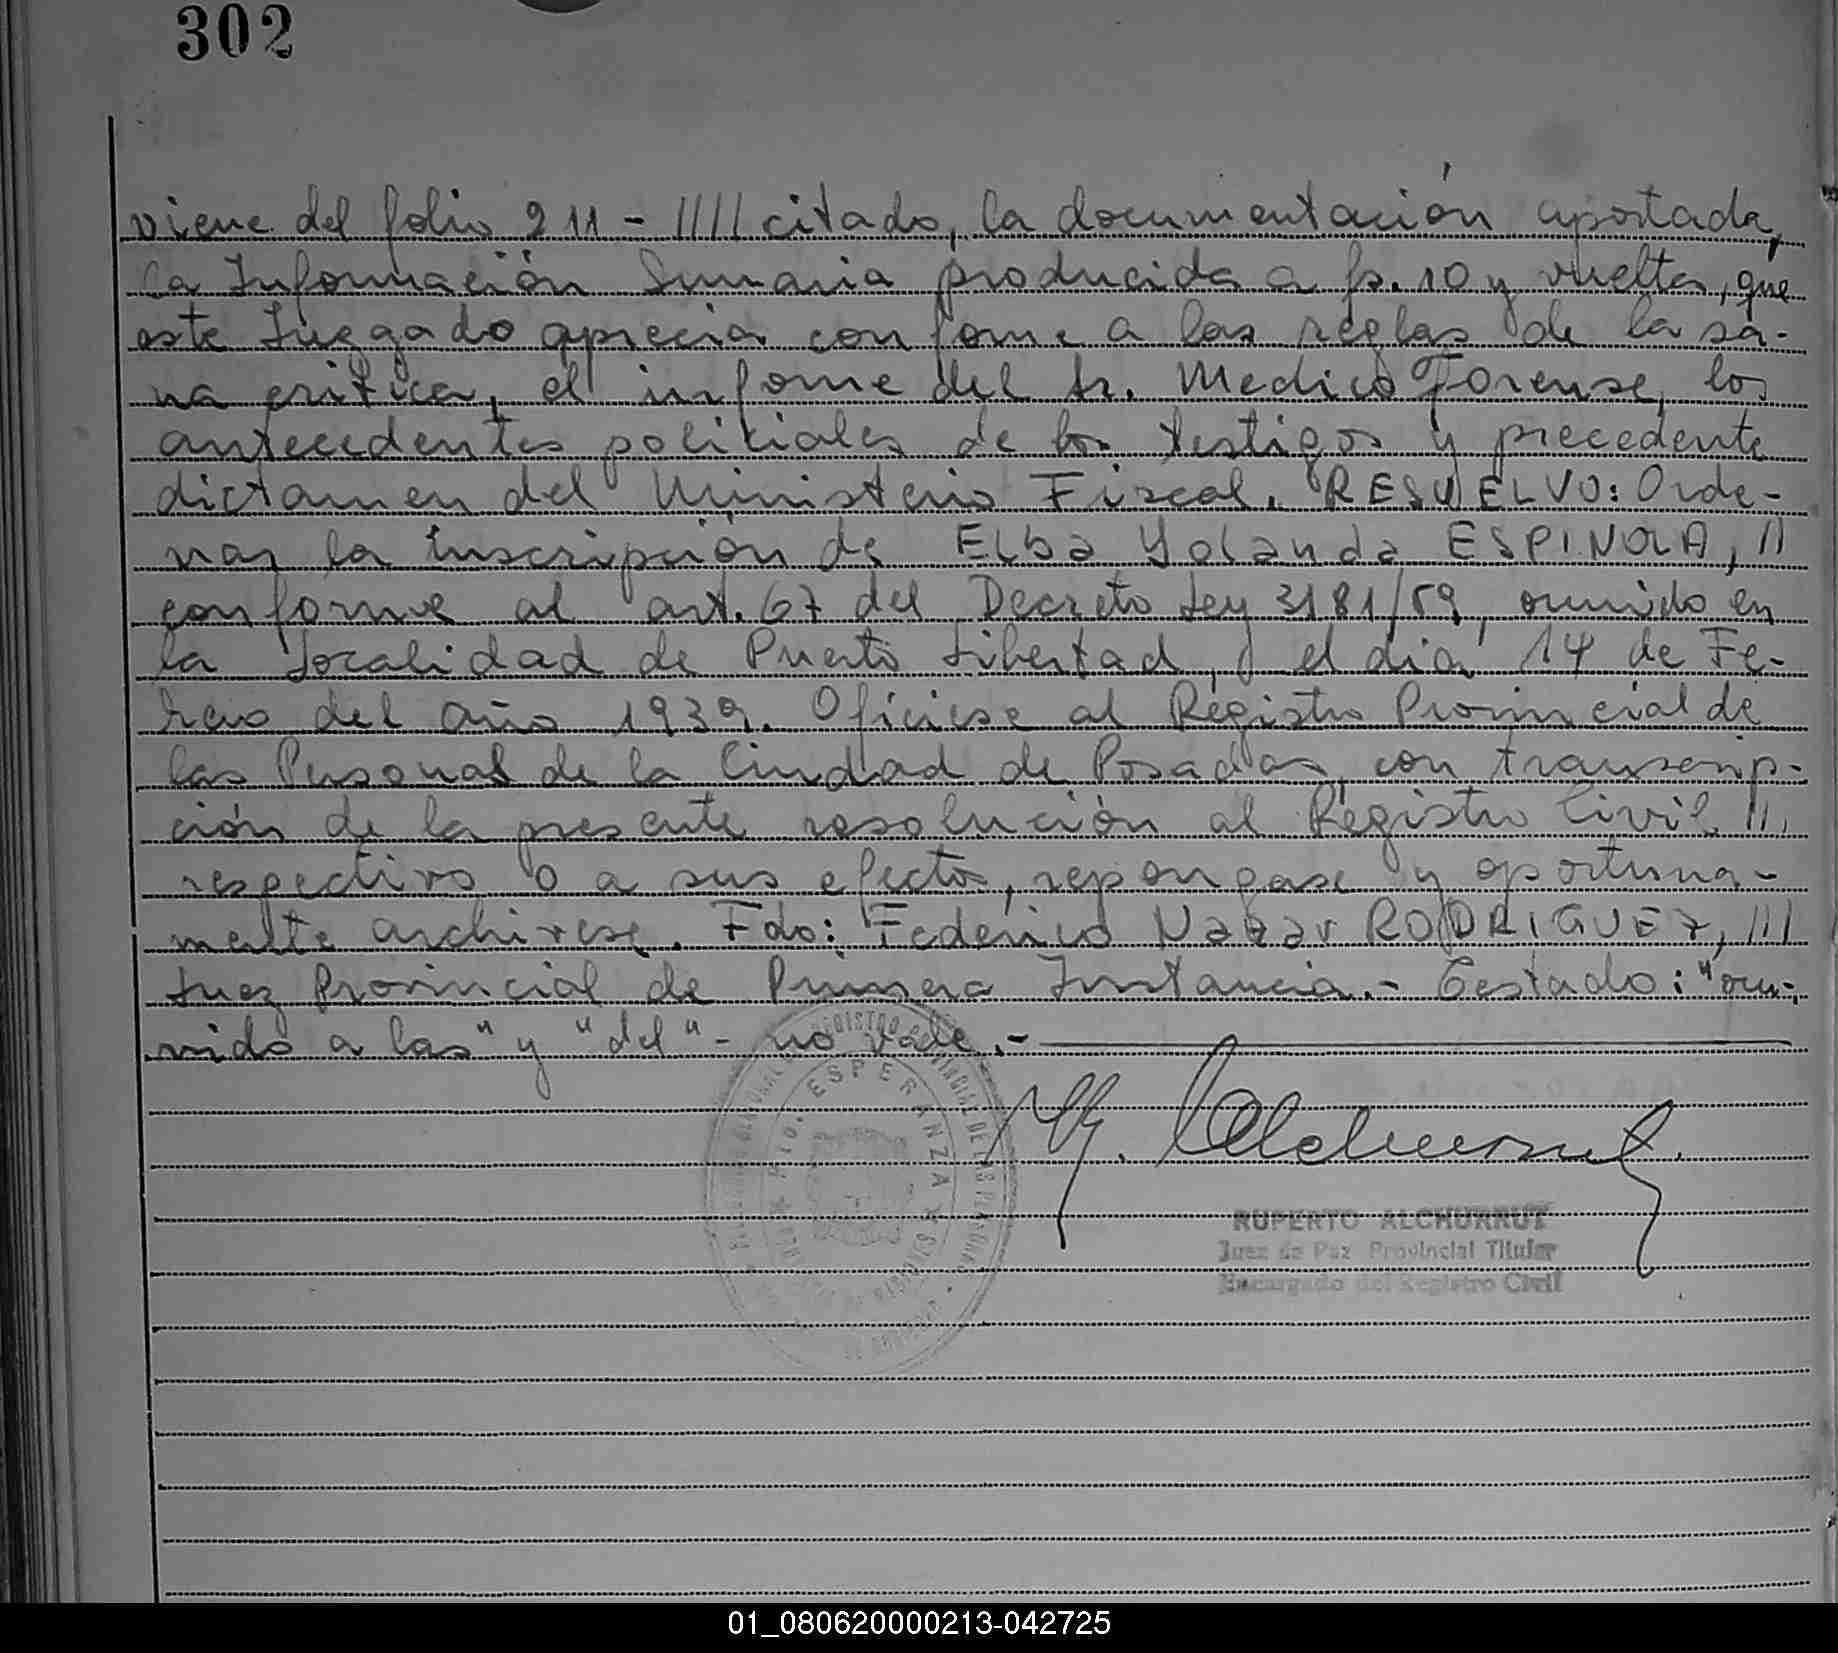 302
viene del folio 211 - //// citado, la documentación aportada,
la Información Sumaria producida a fs. 10 y vuelta, que
este Juzgado aprecia conforme a las reglas de la sa-
na critica, el informe del Sr. Medico Forense, los
antecedentes policiales de los testigos y precedente
dictamen del Ministerio Fiscal. RESUELVO: Orde-
nar la inscripción de Elba Yolanda ESPINOLA, //
conforme al art. 67 del Decreto Ley 3181/59, ocurrido en
la Localidad de Puerto Libertad, el dia 14 de Fe-
brero del año 1939. Ofíciese al Registro Provincial de
las Personas de la Ciudad de Posadas, con transcrip-
ción de la presente resolución al Registro Civil //,
respectivo o a sus efectos, repongase y oportuna-
mente archivese. Fdo: Federico Nazar RODRIGUEZ, ///
Juez Provincial de Primera Instancia.- Testado: "ocu-
rrido a las" y "del" - no vale.-
REGISTRO PROVINCIAL DE LAS PERSONAS
PTO. ESPERANZA
RUPERTO ALCHURRUT
Juez de Paz Provincial Titular
Encargado del Registro Civil
01_080620000213-042725